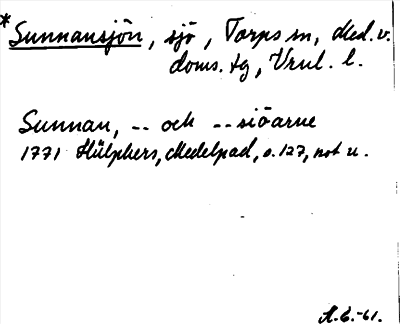 *Sunnansjön, sjö, Torps sn, Med. v.
doms. tg, Vrnl. l.
Sunnan, -- och --siöarne
1771 Hülphers, Medelpad, s. 127, not u.
A.E.-61.